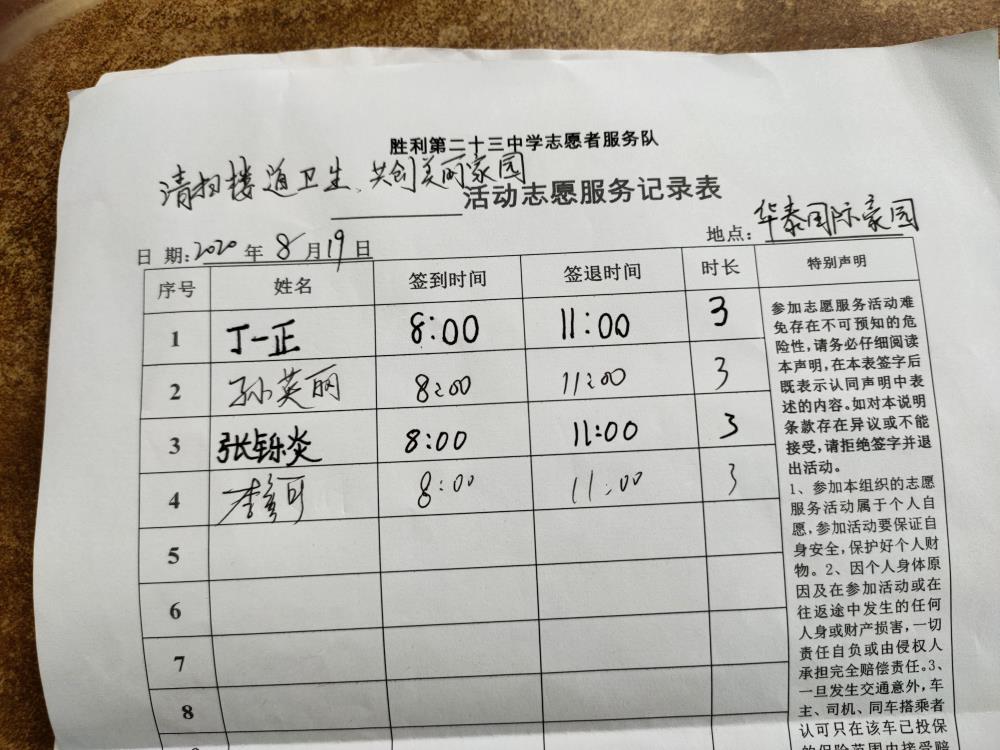 胜利第二十三中学志愿者服务队
清扫楼道卫生、共创美丽家园
活动志愿服务记录表
日 期:2020 年 8 月 19 日 地点:华泰国际家园
序号 姓名 签到时间 签退时间 时长 特别声明
1 丁一正 8:00 11:00 3
2 孙英丽 8:00 11:00 3
3 张铄炎 8:00 11:00 3
4 李 可 8:00 11:00 3
5
6
7
8
参加志愿服务活动难
免存在不可预知的危
险性,请务必仔细阅读
本声明,在本表签字后
既表示认同声明中表
述的内容。如对本说明
条款存在异议或不能
接受,请拒绝签字并退
出活动。
1、参加本组织的志愿
服务活动属于个人自
愿,参加活动要保证自
身安全,保护好个人财
物。2、因个人身体原
因及在参加活动或在
往返途中发生的任何
人身或财产损害,一切
责任自负或由侵权人
承担完全赔偿责任。3、
一旦发生交通意外,车
主、司机、同车搭乘者
认可只在该车已投保
的保险范围内接受赔